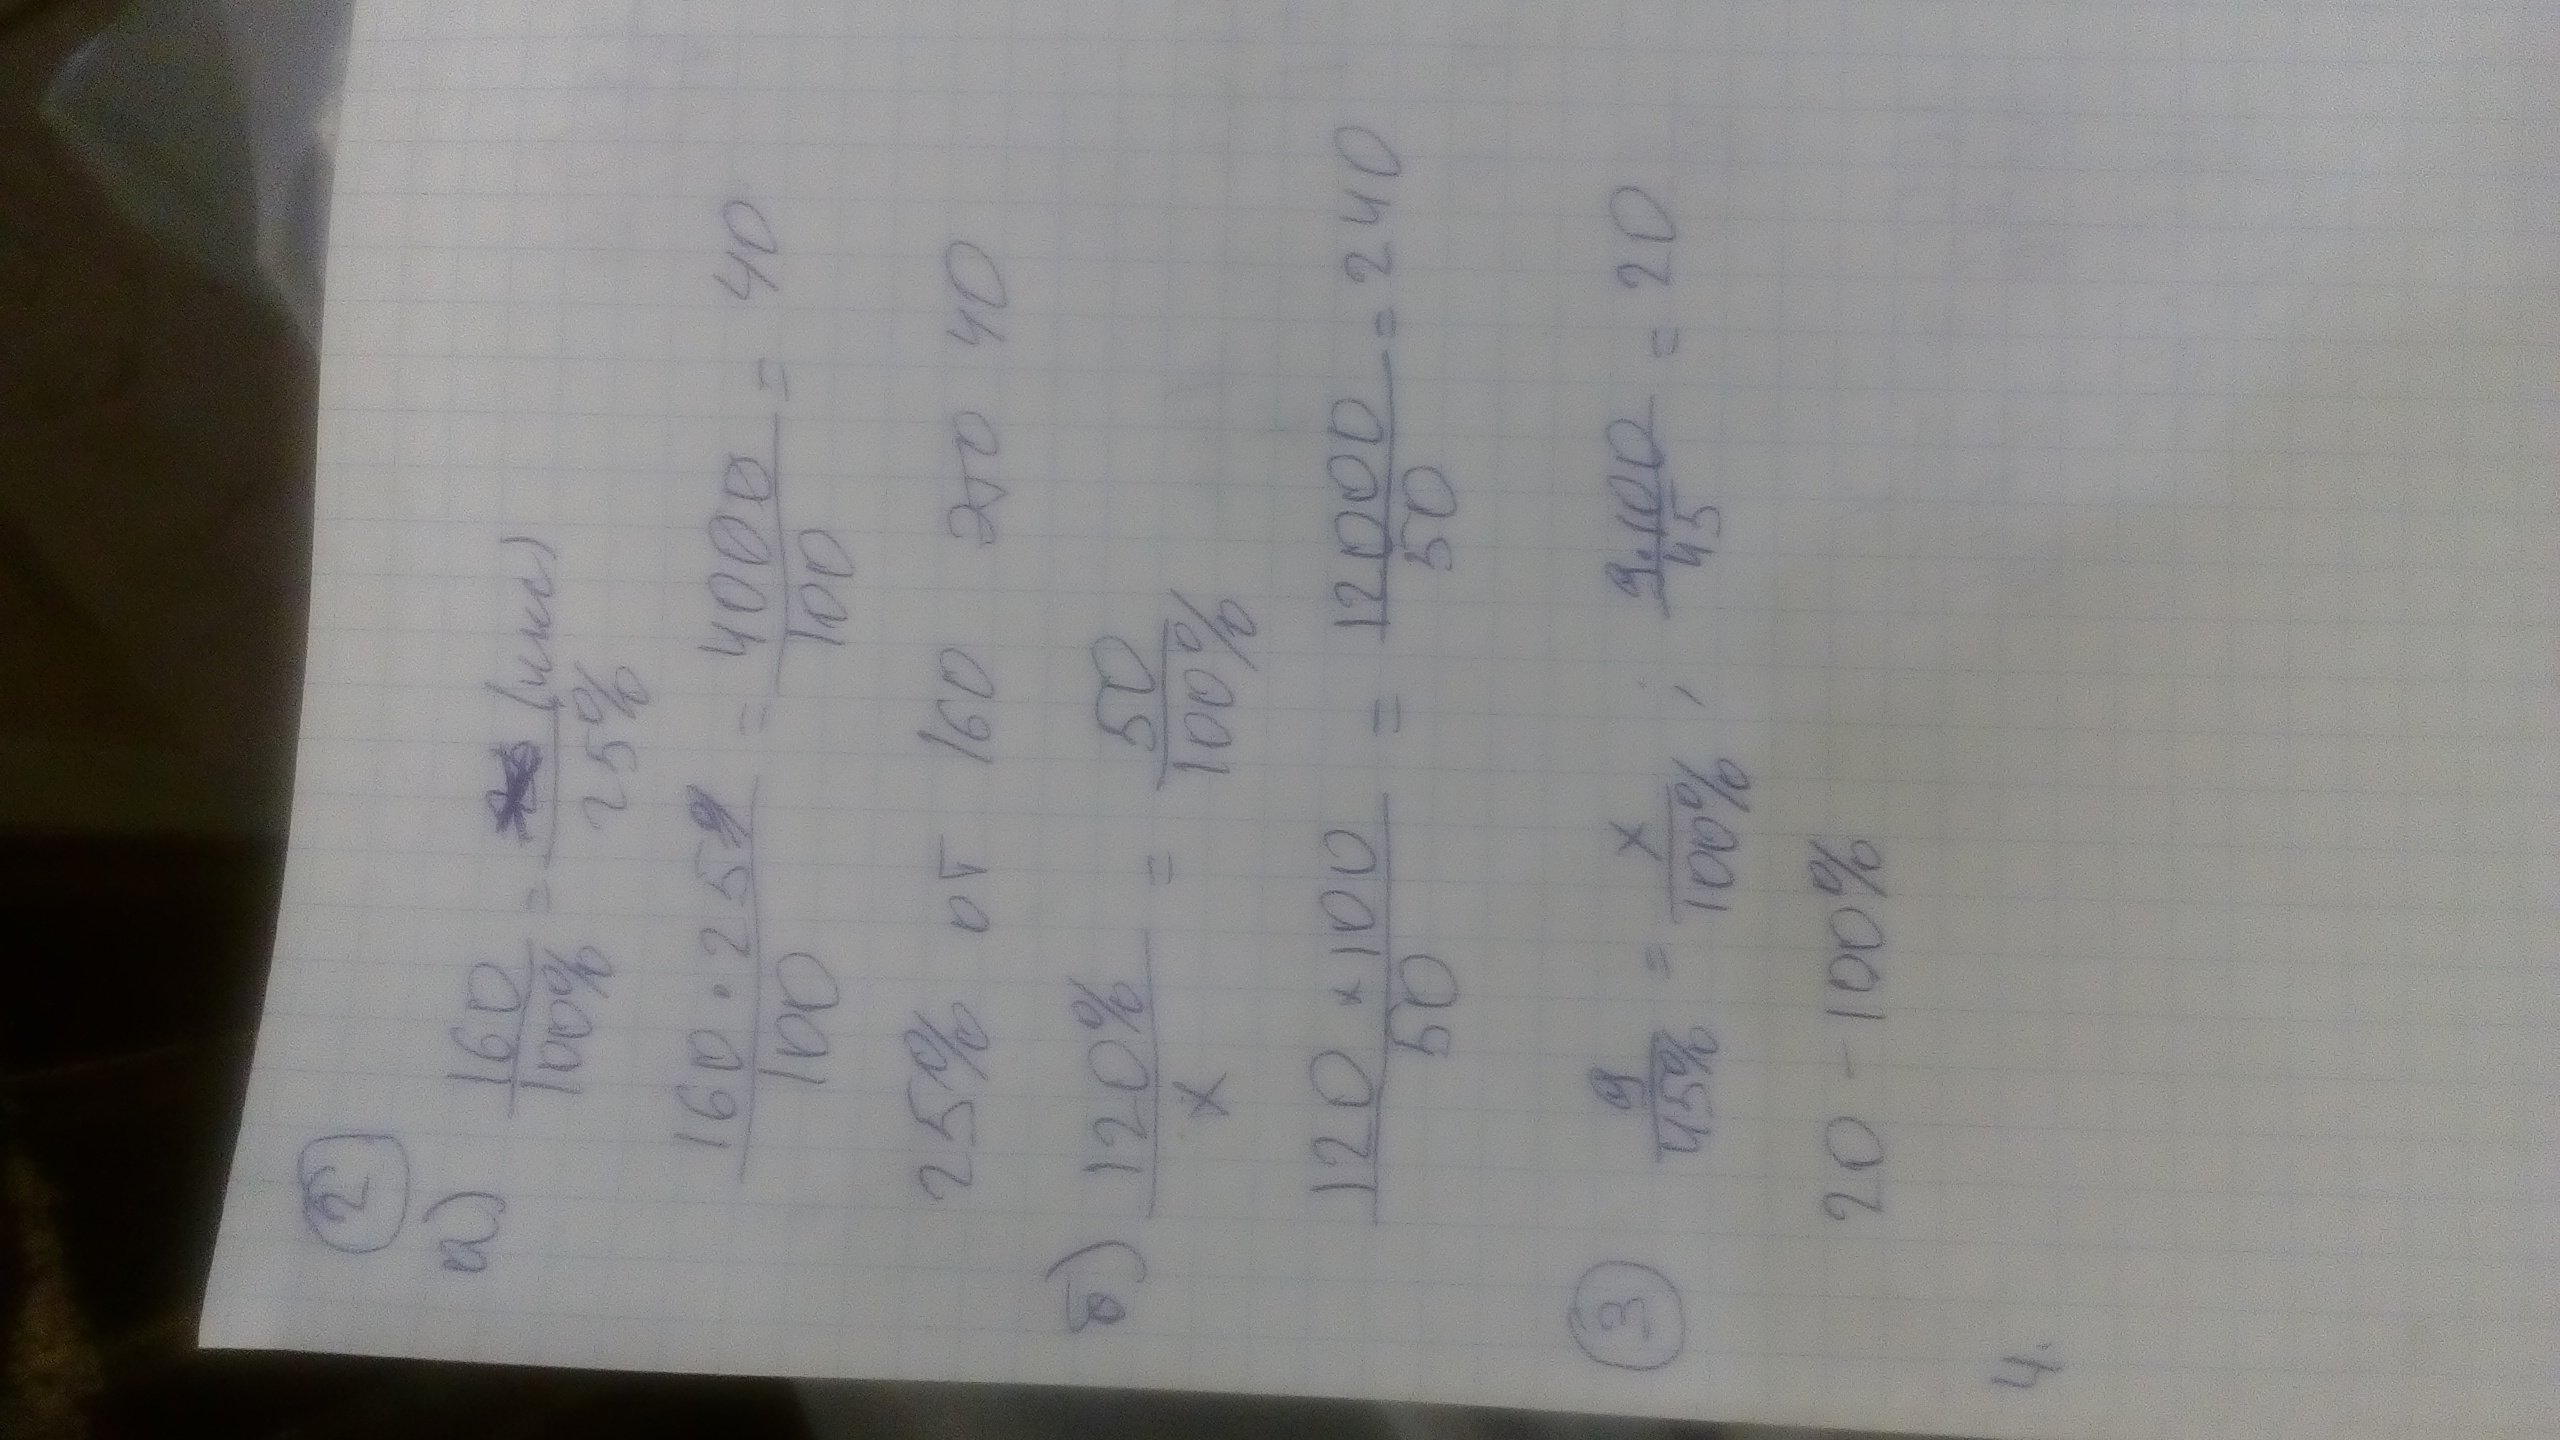 2
а)
160/100% = (икс)/25%
160 · 25/100 = 4000/100 = 40
25% от 160 это 40
б) 120%/x = 50/100%
120 × 100/50 = 12000/50 = 240
3 9/45% = x/100% ; 9·100/45 = 20
20 - 100%
4.